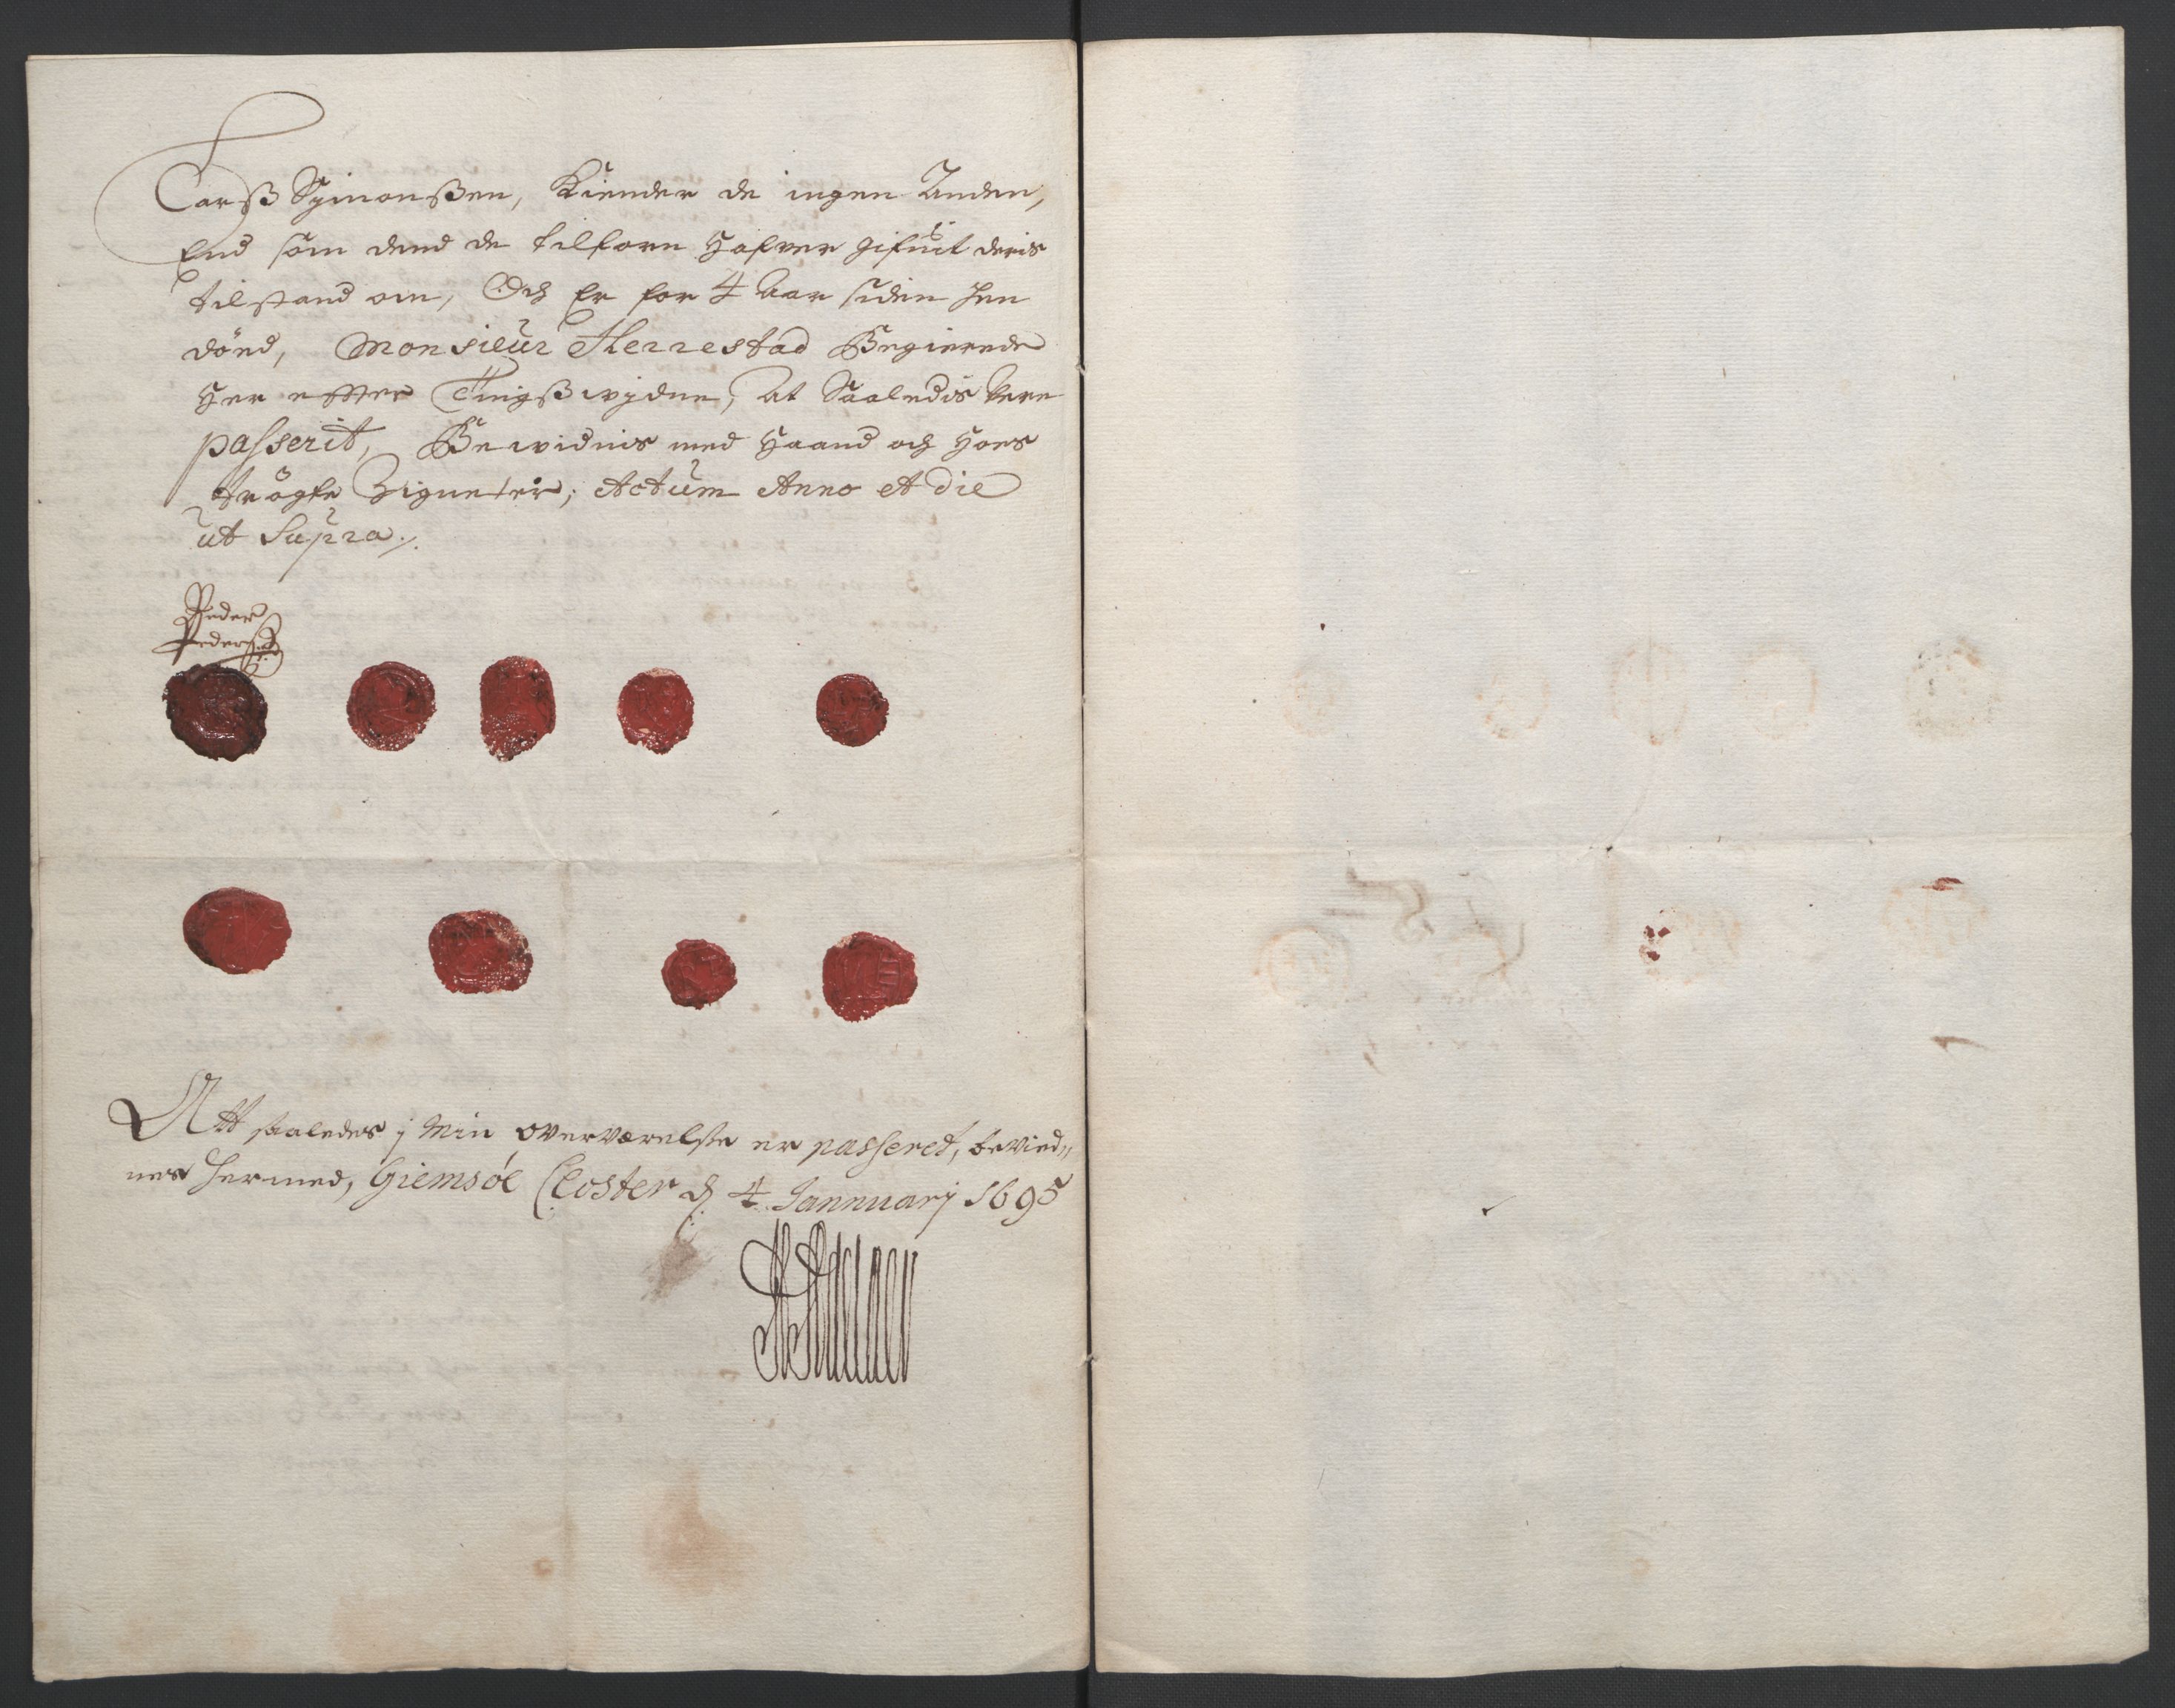 Larß Symonßen, Kiender de ingen Anden,
End som dend de tilforn hafver gifuit deris
tilstand om, Och Er for 4 Aar siden hen
död, Monsieur Herrestad Begierede
her efter Tingßwidne, At Saaledis Vere
passerit, Bewidnis med Haand och hoes
trögte Zigneter, Actum Anno et die
ut Supra ./.
Peder
Pederßen
Att saaledes j Min overværelse er passeret, bevied„
nes hermed, Giemsöe Closter d. 4 Jannuarj 1695
Adelaer